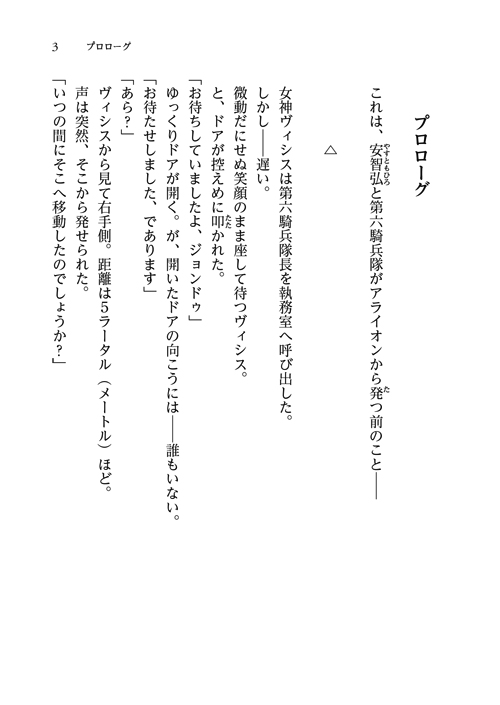 3 プロローグ
プロローグ
これは、安智弘と第六騎兵隊がアライオンから発つ前のこと――
△
女神ヴィシスは第六騎兵隊長を執務室へ呼び出した。
しかし――遅い。
微動だにせぬ笑顔のまま座して待つヴィシス。
と、ドアが控えめに叩かれた。
「お待ちしていましたよ、ジョンドゥ」
ゆっくりドアが開く。が、開いたドアの向こうには――誰もいない。
「お待たせしました、であります」
「あら?」
ヴィシスから見て右手側。距離は5ラータル(メートル)ほど。
声は突然、そこから発せられた。
「いつの間にそこへ移動したのでしょうか?」